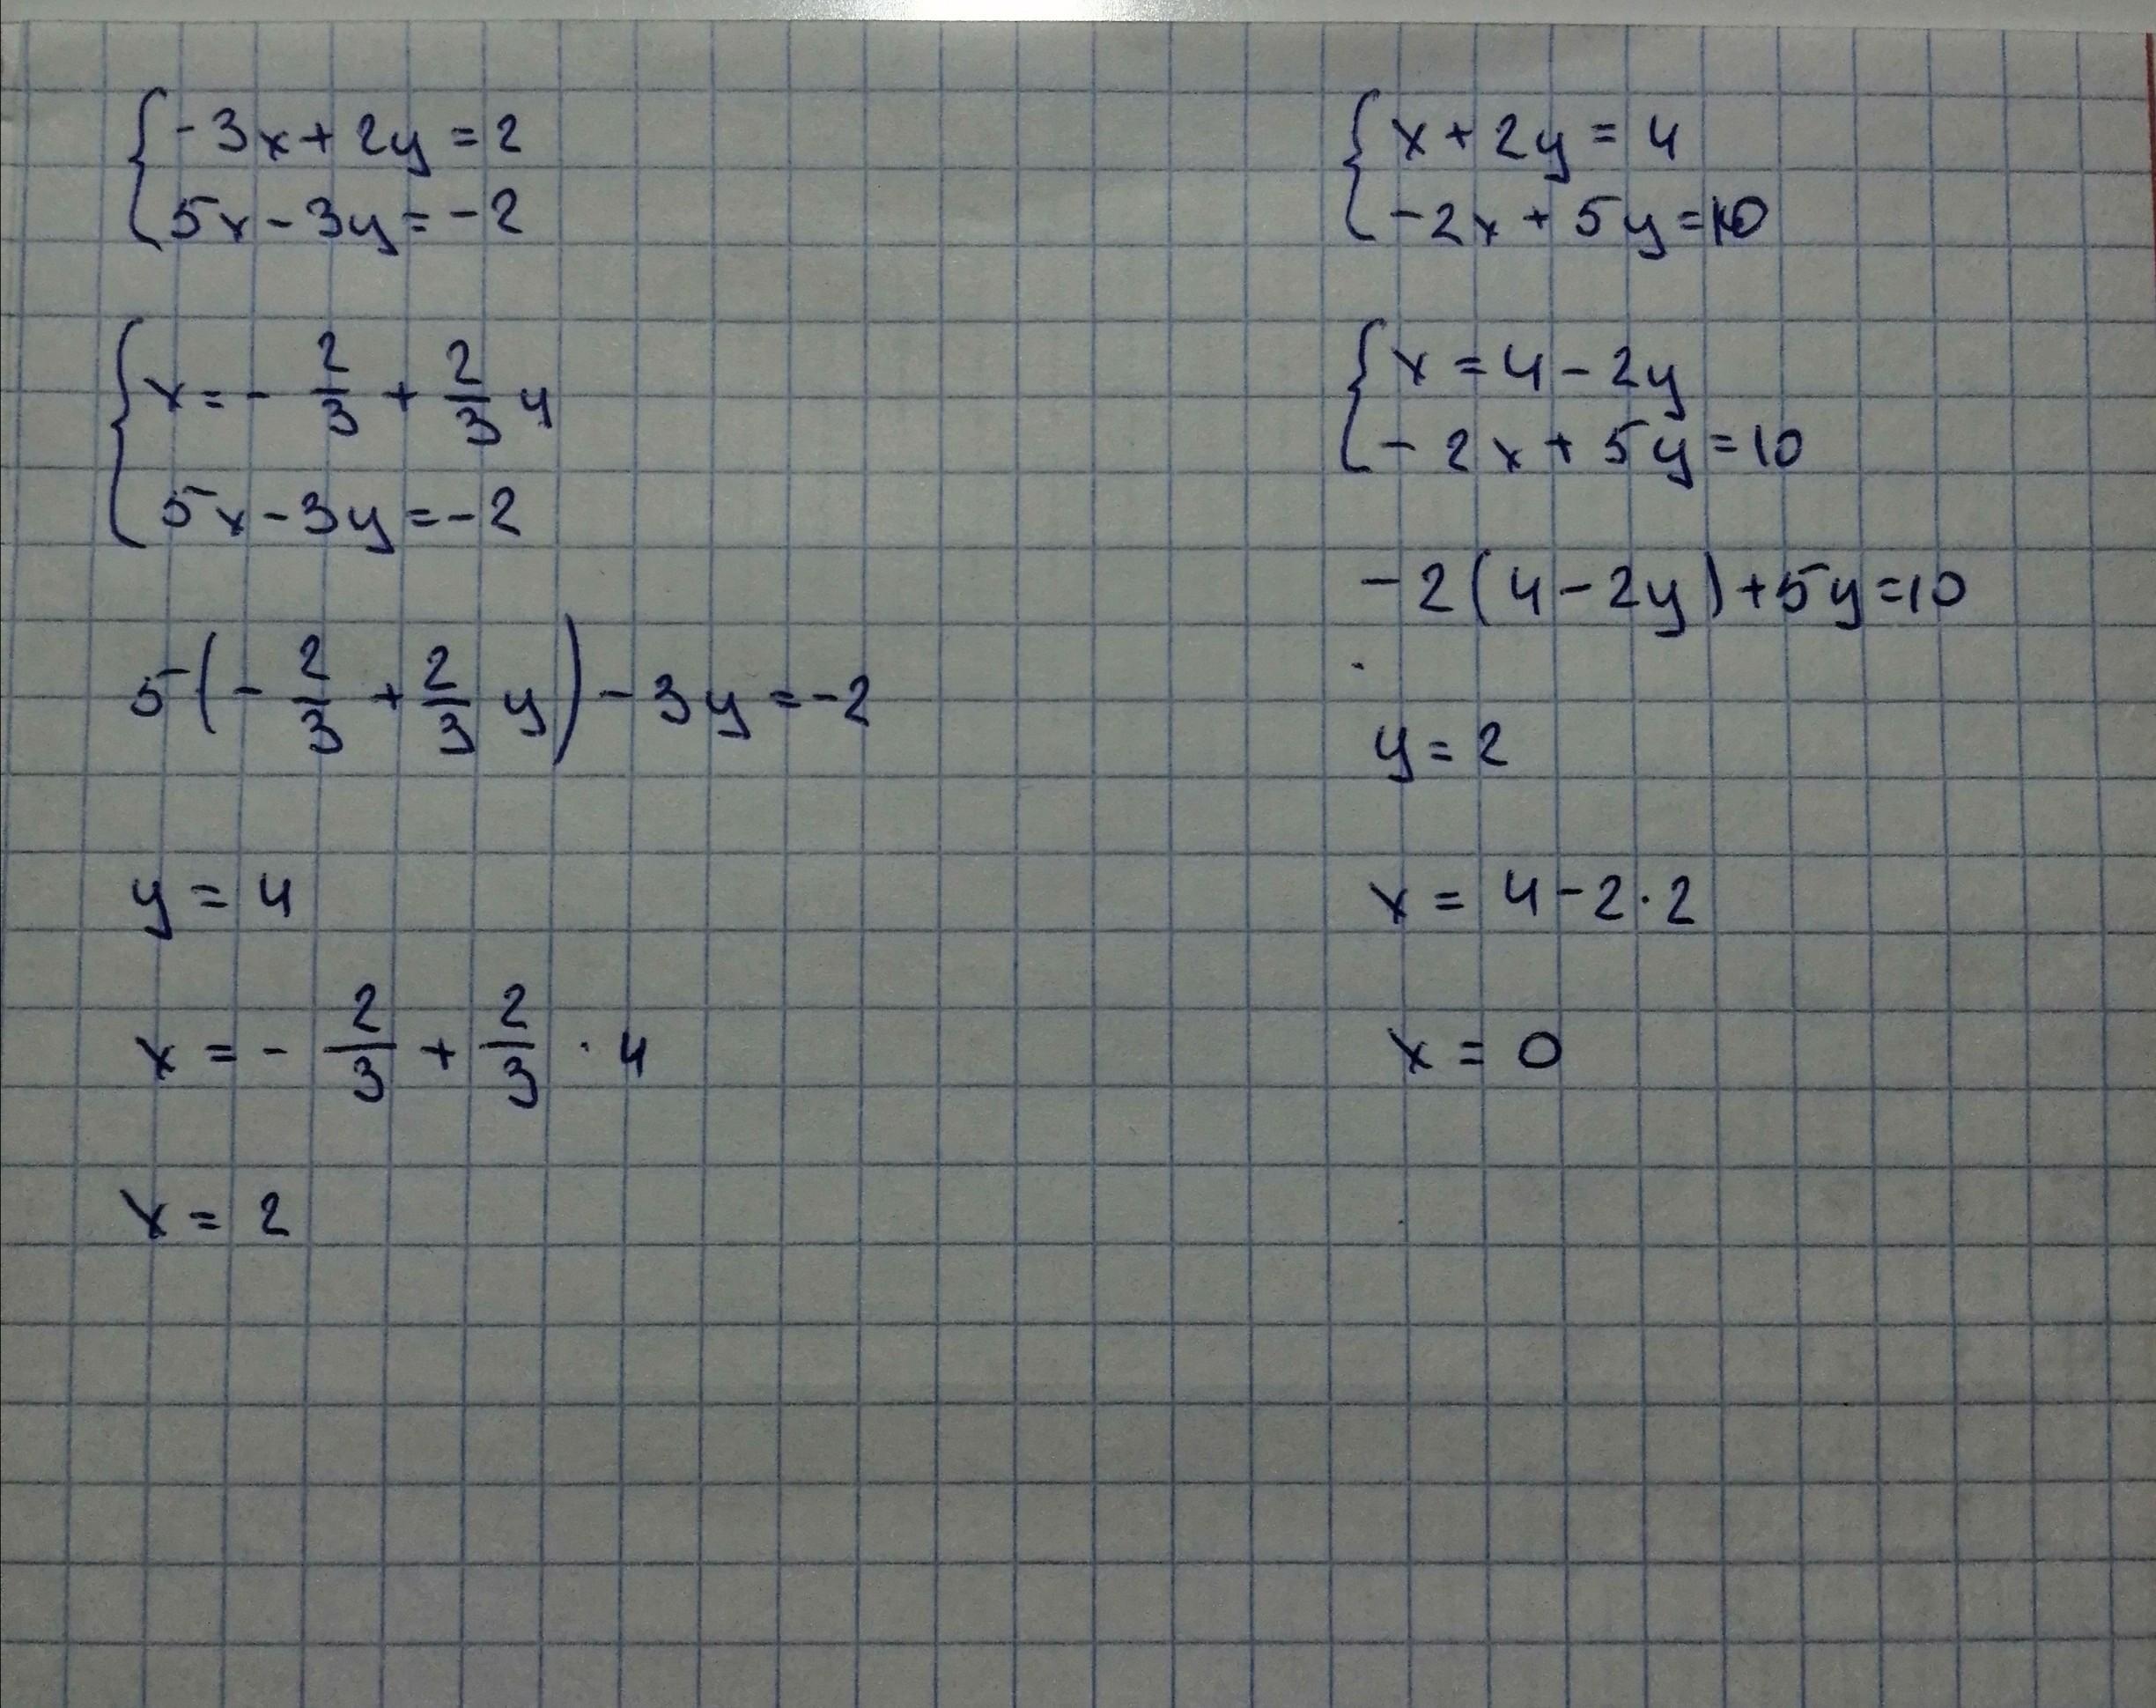 { -3x + 2y = 2
5x - 3y = -2
{ x = - 2/3 + 2/3 y
5x - 3y = -2
5(- 2/3 + 2/3 y) - 3y = -2
y = 4
x = - 2/3 + 2/3 · 4
x = 2
{ x + 2y = 4
-2x + 5y = 10
{ x = 4 - 2y
-2x + 5y = 10
-2(4 - 2y) + 5y = 10
y = 2
x = 4 - 2 · 2
x = 0